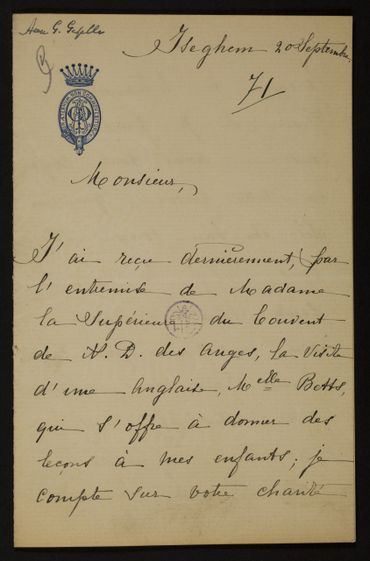 Aan G. Gezelle
Iseghem 20 Septembre
71
Monsieur,
J'ai reçu dernièrement, par
l'entremise de Madame
la Supérieure du Couvent
de N. D. des Anges, la visite
d'une Anglaise, Melle Betts,
qui s'offre à donner des
leçons à mes enfants; je
compte sur votre charité